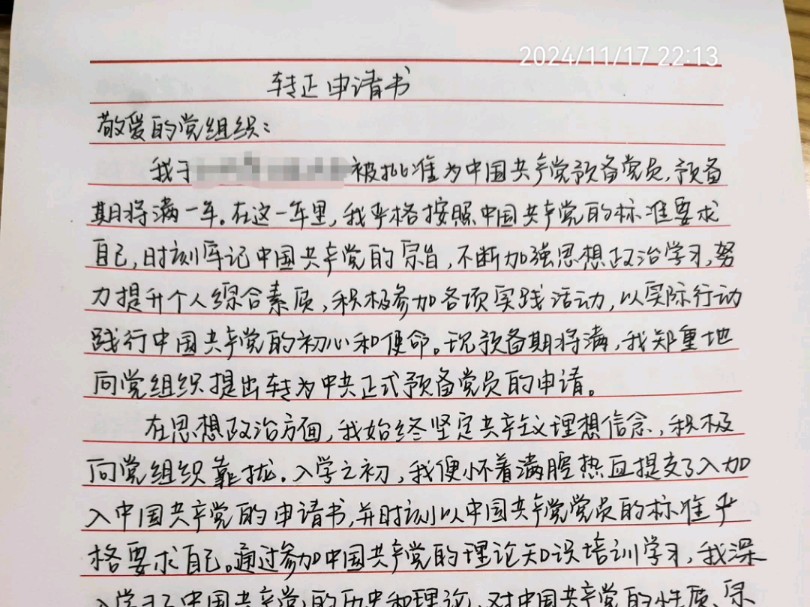 2024/11/17 22:13
转正申请书
敬爱的党组织：
我于 被批准为中国共产党预备党员，预备
期将满一年。在这一年里，我严格按照中国共产党的标准要求
自己，时刻牢记中国共产党的宗旨，不断加强思想政治学习，努
力提升个人综合素质，积极参加各项实践活动，以实际行动
践行中国共产党的初心和使命。现预备期将满，我郑重地
向党组织提出转为中央正式预备党员的申请。
在思想政治方面，我始终坚定共产主义理想信念，积极
向党组织靠拢。入学之初，我便怀着满腔热血提交了入加
入中国共产党的申请书，并时刻以中国共产党党员的标准严
格要求自己。通过参加中国共产党的理论知识培训学习，我深
入学习了中国共产党的历史和理论，对中国共产党的性质、宗